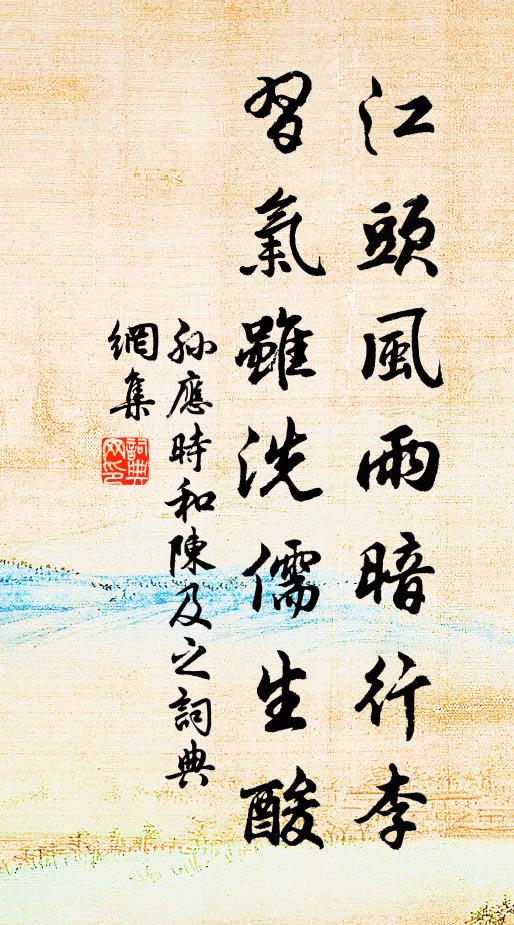 江頭風雨暗行李
習氣雖洗儒生酸
孫應時和陳及之詞典
網集
詞典
网印